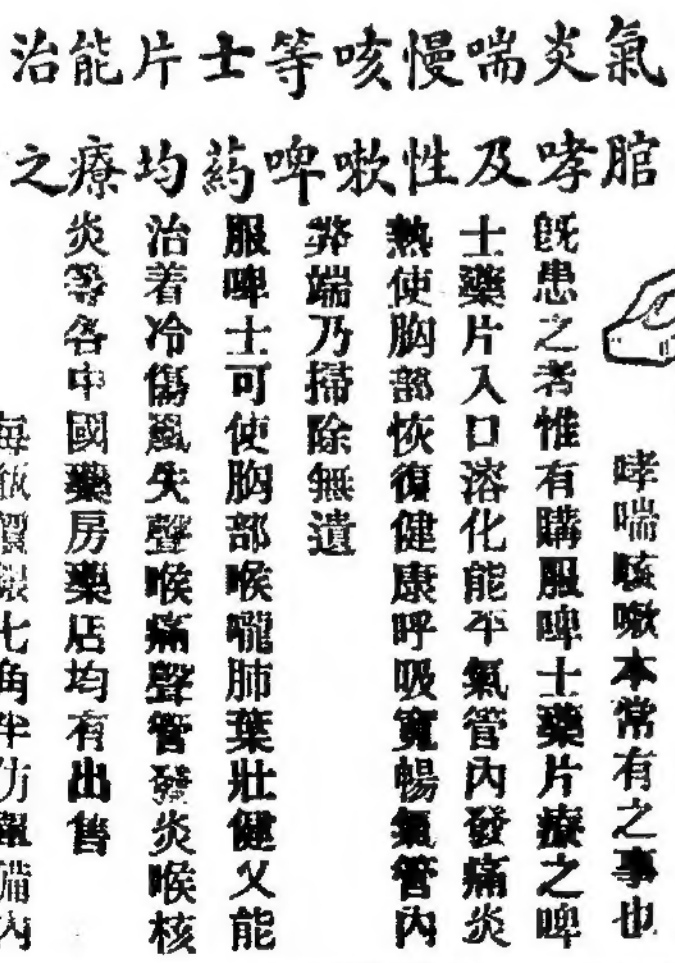 氣炎哮喘及慢性咳嗽等啤士葯片均能療治之
哮喘咳嗽本常有之事也
既患之者惟有購服啤士藥片療之啤
士藥片入口溶化能平氣管內發痛炎
熱使胸部恢復健康呼吸寬暢氣管內
弊端乃掃除無遺
服啤士可使胸部喉嚨肺葉壯健又能
治着冷傷風失聲喉痛聲管發炎喉核
炎等各中國藥房藥店均有出售
每瓶價銀七角半仿單備內